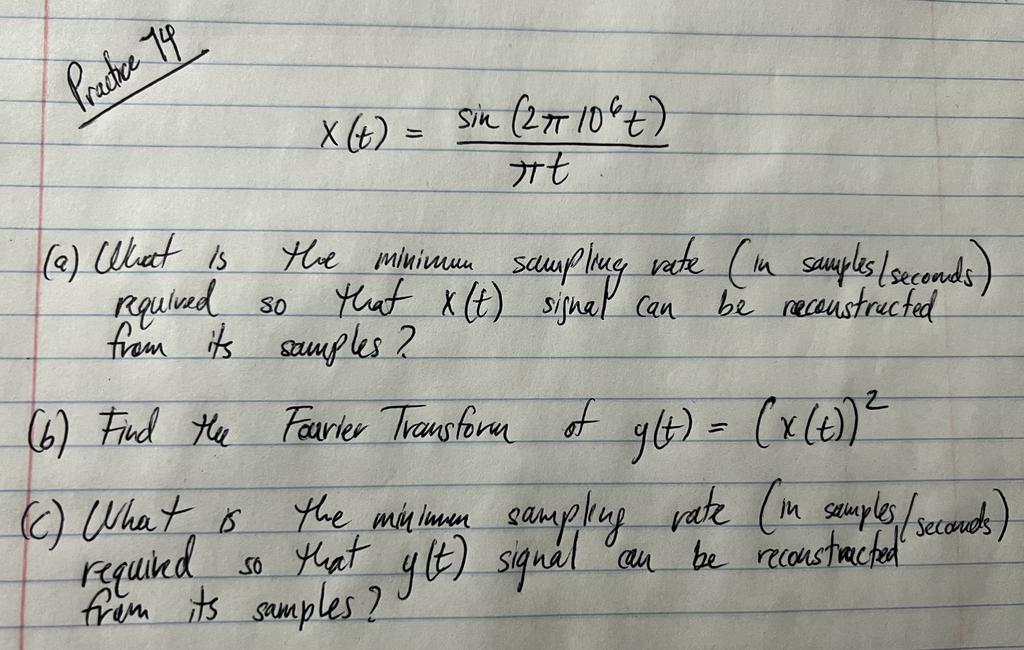 Practice 14
x(t) = sin (2π 10⁶ t) / πt
(a) What is the minimum sampling rate (in samples/seconds)
required so that x(t) signal can be reconstructed
from its samples?
(b) Find the Fourier Transform of y(t) = (x(t))²
(c) What is the minimum sampling rate (in samples/seconds)
required so that y(t) signal can be reconstructed
from its samples?